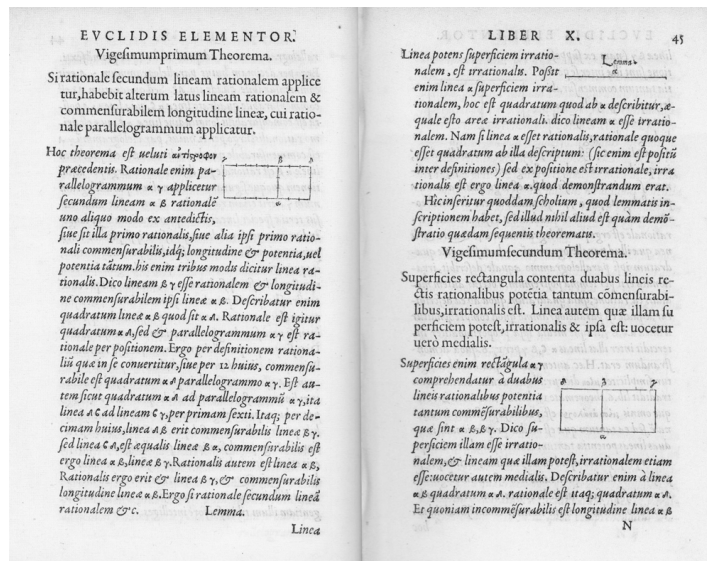 EVCLIDIS ELEMENTOR.
Vigesimumprimum Theorema.
Si rationale secundum lineam rationalem applice
tur, habebit alterum latus lineam rationalem &
commensurabilem longitudine lineæ, cui ratio-
nale parallelogrammum applicatur.
Hoc theorema est ueluti
præcedentis. Rationale enim pa-
rallelogrammum α γ applicetur
secundum lineam α β rationalē
uno aliquo modo ex antedictis,
siue sit illa primo rationalis, siue alia ipsi primo ratio-
nali commensurabilis, idq; longitudine & potentia, uel
potentia tātum. his enim tribus modis dicitur linea ra-
tionalis. Dico lineam β γ esse rationalem & longitudi-
ne commensurabilem ipsi lineæ α β. Describatur enim
quadratum lineæ α β quod sit α δ. Rationale est igitur
quadratum α δ, sed & parallelogrammum α γ est ra-
tionale per positionem. Ergo per definitionem rationa-
liū quæ in se conuertitur, siue per 12 huius, commensu-
rabile est quadratum α δ parallelogrammo α γ. Est au-
tem sicut quadratum α δ ad parallelogrammū α γ, ita
linea δ β ad lineam β γ, per primam sexti. Itaq; per de-
cimam huius, linea δ β erit commensurabilis lineæ β γ.
sed linea β δ, est æqualis lineæ β α, commensurabilis est
ergo linea α β, lineæ β γ. Rationalis autem est linea α β,
Rationalis ergo erit & linea β γ, & commensurabilis
longitudine lineæ α β. Ergo si rationale secundum lineā
rationalem &c. Lemma.
Linea
LIBER X. 45
Linea potens superficiem irratio-
nalem, est irrationalis. Possit
Lemma
α
enim linea α superficiem irra-
tionalem, hoc est quadratum quod ab α describitur, æ-
quale esto areæ irrationali. dico lineam α esse irratio-
nalem. Nam si linea α esset rationalis, rationale quoque
esset quadratum ab illa descriptum: (sic enim est positū
inter definitiones) sed ex positione est irrationale, irra
tionalis est ergo linea α. quod demonstrandum erat.
Hic inseritur quoddam scholium, quod lemmatis in-
scriptionem habet, sed illud nihil aliud est quàm demō-
stratio quædam sequentis theorematis.
Vigesimumsecundum Theorema.
Superficies rectangula contenta duabus lineis re-
ctis rationalibus potētia tantum cōmensurabi-
libus, irrationalis est. Linea autem quæ illam su
perficiem potest, irrationalis & ipsa est: uocetur
uerò medialis.
Superficies enim rectāgula α γ
comprehendatur à duabus
lineis rationalibus potentia
tantum commēsurabilibus,
quæ sint α β, β γ. Dico su-
perficiem illam esse irratio-
nalem, & lineam quæ illam potest, irrationalem etiam
esse: uocetur autem medialis. Describatur enim à linea
α β quadratum α δ. rationale est itaq; quadratum α δ.
Et quoniam incommēsurabilis est longitudine linea α β
N